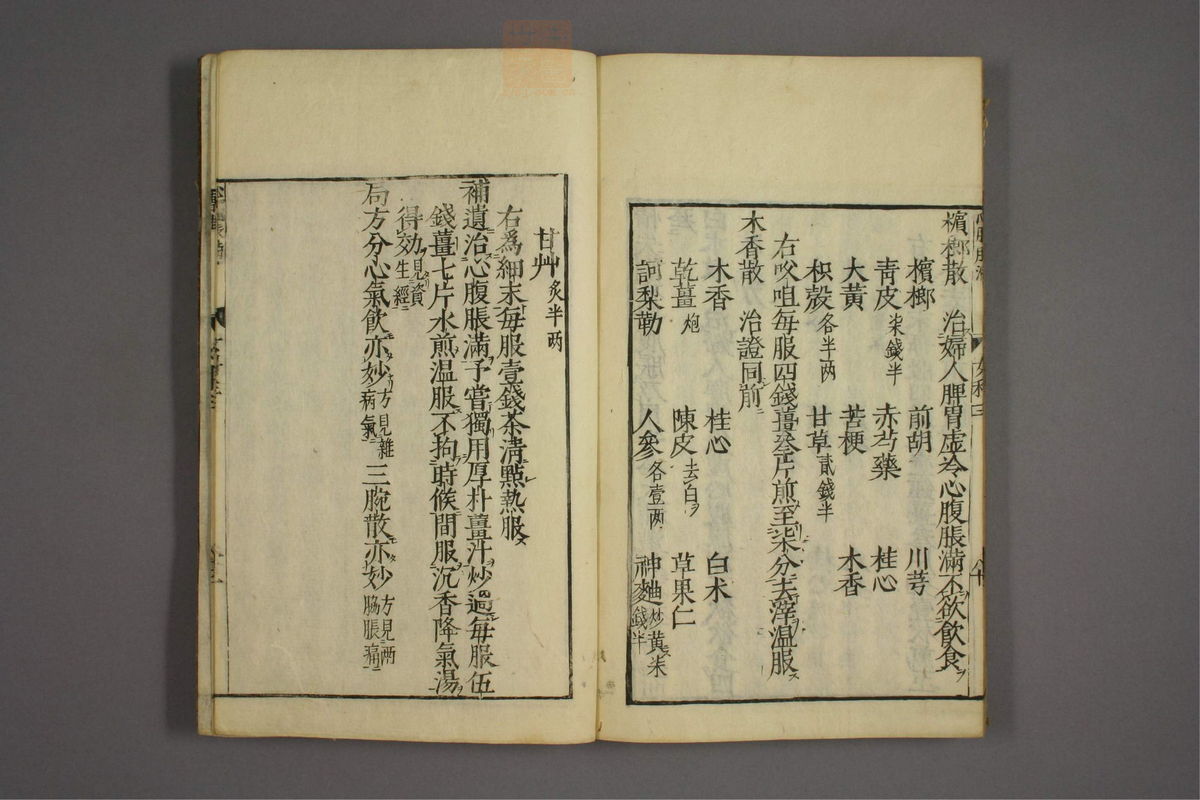 檳榔散 治婦人脾胃虚冷心腹脹滿不欲飲食
檳榔 前胡 川芎
青皮柒錢半 赤芍藥 桂心
大黄 苦梗 木香
枳殼各半两 甘草貳錢半
右㕮咀毎服四錢薑叄片煎至柒分去滓温服
木香散 治證同前
木香 桂心 白术
乾薑炮 陳皮去白 草果仁
訶梨勒 人參各壹两 神麯炒黄柒錢半
甘艸炙半两
右爲細末毎服壹錢茶清點熱服
補遺治心腹脹滿予嘗獨用厚朴薑汁炒過毎服伍
錢薑七片水煎温服不拘時候間服沉香降氣湯
得効見資生經
局方分心氣飲亦妙方見雜病氣 三腕散亦妙方見两脇脹痛